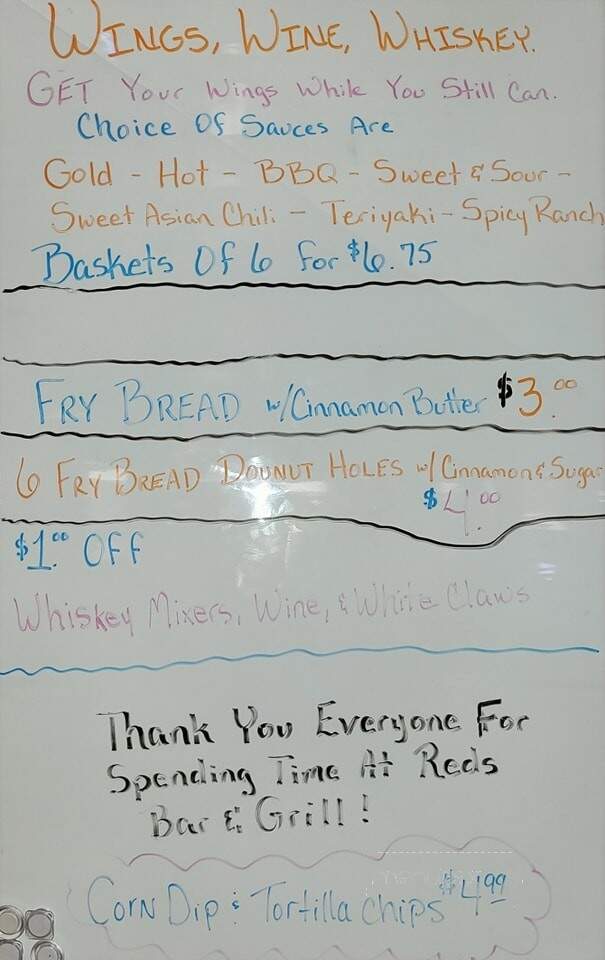 WINGS, WINE, WHISKEY.
GET Your Wings While You Still Can.
Choice Of Sauces Are
Gold - Hot - BBQ - Sweet & Sour -
Sweet Asian Chili - Teriyaki - Spicy Ranch
Baskets Of 6 for $6.75
FRY BREAD w/Cinnamon Butter $3.00
6 FRY BREAD DOUNUT HOLES w/Cinnamon & Sugar
$4.00
$1.00 OFF
Whiskey Mixers, Wine, & White Claws
Thank You Everyone For
Spending Time At Reds
Bar & Grill!
Corn Dip & Tortilla chips $4.99